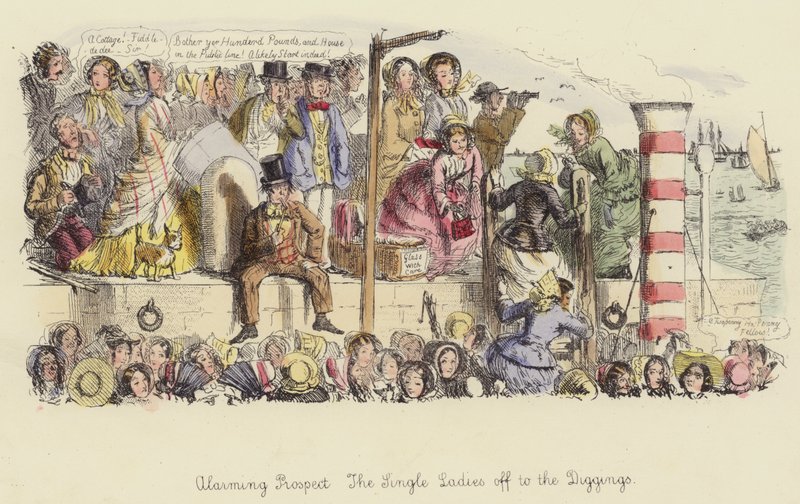 A Cottage! Fiddle-
de dee - Sir!
Bother yer Hunderd Pounds, and House
in the Public line! A likely Start indeed!
Glass
with
Care
Fellow!
Alarming Prospect The Single Ladies off to the Diggings.